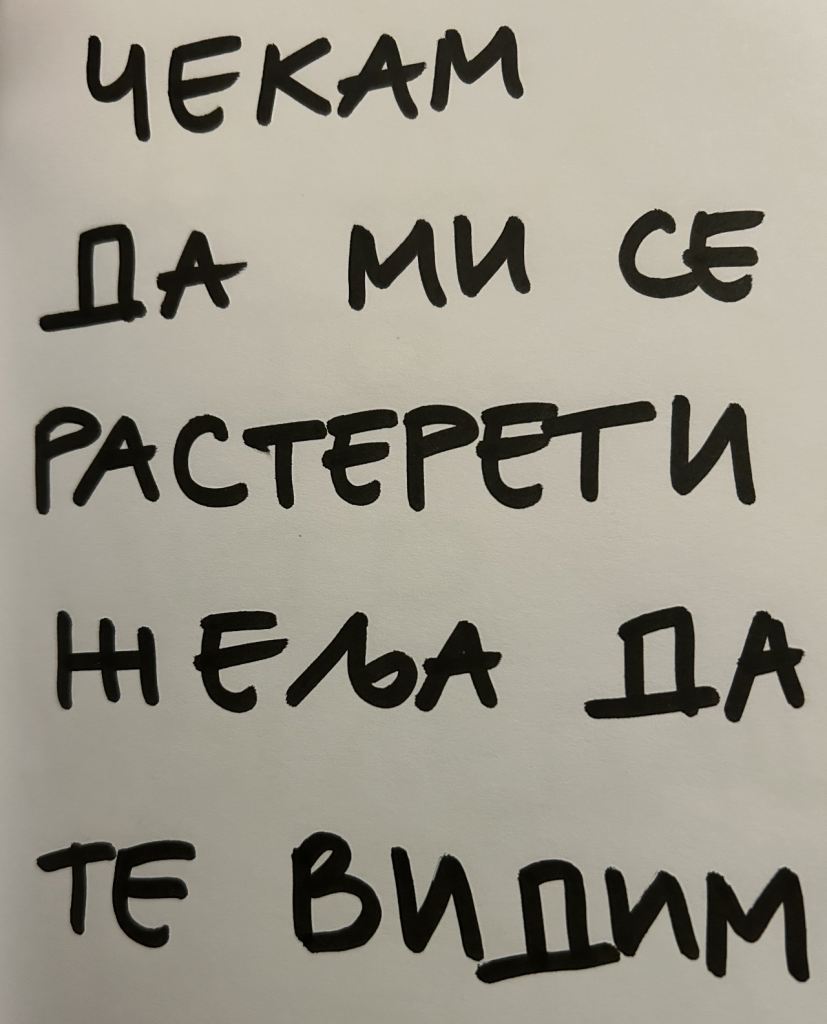 ЧЕКАМ
ДА МИ СЕ
РАСТЕРЕТИ
ЖЕЉА ДА
ТЕ ВИДИМ